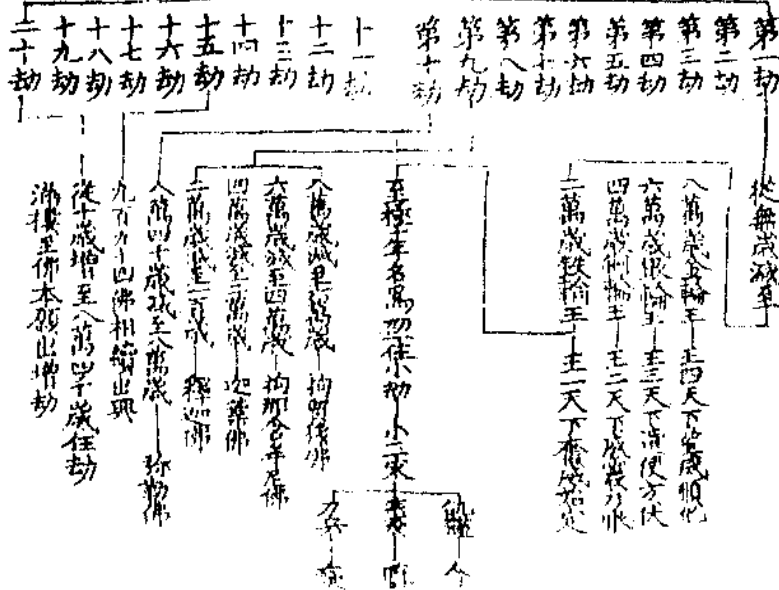 第一劫
第二劫
第三劫
第四劫
第五劫
第六劫
第七劫
第八劫
第九劫
第十劫
十一劫
十二劫
十三劫
十四劫
十五劫
十六劫
十七劫
十八劫
十九劫
二十劫
從無歲減至
八萬歲金輪王 王四天下皆咸順化
六萬歲銀輪王 王三天下 使方伏
四萬歲銅輪王 王二天下
二萬歲鉄輪王 王一天下
至極十年名爲 住小劫 小三灾
飢饉
疾疫
刀兵
八萬歲減至 萬歲 拘 佛
六萬歲減至四萬歲 拘那含牟尼佛
四萬歲減至二萬歲 迦葉佛
二萬歲減至一百歲 釋迦佛
八萬四千歲減至八萬歲 弥勒佛
九百九十四佛相續出興
從十歲增至八萬四千歲住劫
滿樓至佛本願出增劫